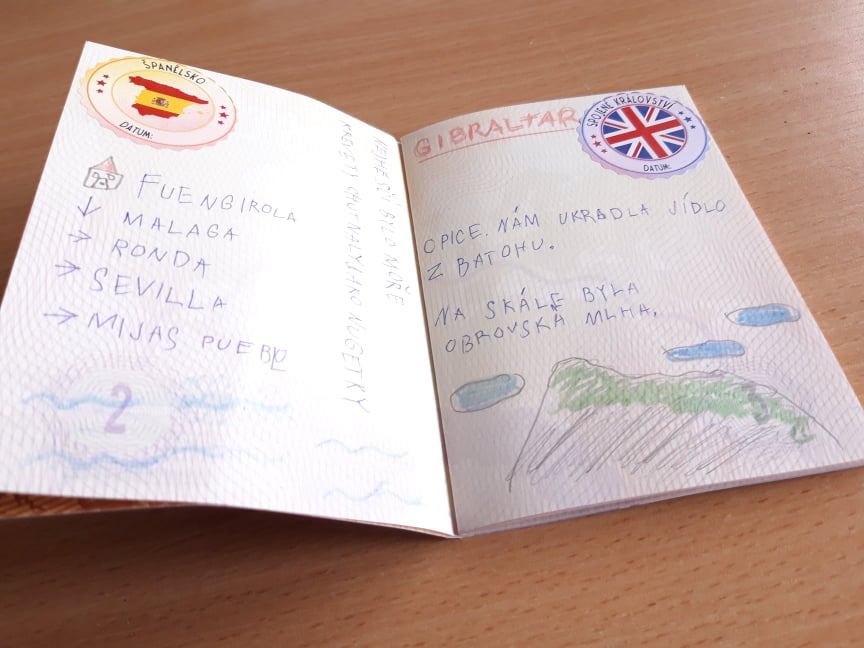 ŠPANĚLSKO
DATUM:
FUENGIROLA
MALAGA
RONDA
SEVILLA
MIJAS PUEBLO
2
BYLO MOŘE
JAKO NUGETKY
GIBRALTAR
SPOJENÉ KRÁLOVSTVÍ
DATUM:
OPICE NÁM UKRADLA JÍDLO
Z BATOHU.
NA SKÁLE BYLA
OBROVSKÁ MLHA.